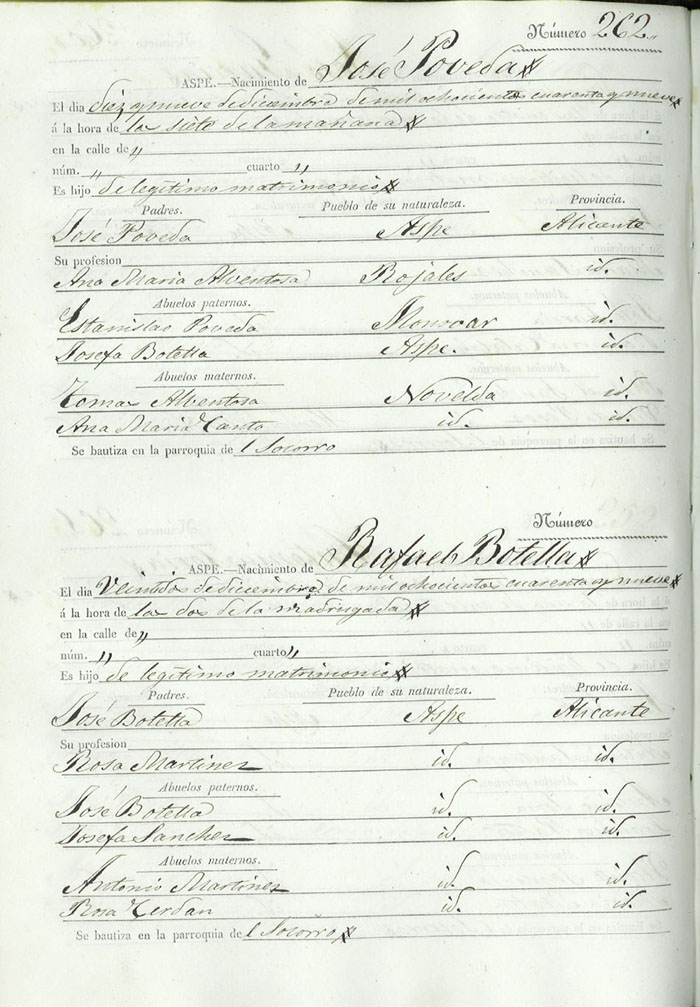 Número 262.
ASPE.—Nacimiento de José Poveda
El dia diez y nueve de diciembre de mil ochocientos cuarenta y nueve
á la hora de las siete de la mañana
en la calle de "
núm. " cuarto "
Es hijo de legítimo matrimonio
Padres. Pueblo de su naturaleza. Provincia.
José Poveda Aspe Alicante
Su profesion
Ana Maria Alventosa Rojales id.
Abuelos paternos.
Estanislao Poveda Monovar id.
Josefa Botella Aspe. id.
Abuelos maternos.
Tomas Alventosa Novelda id.
Ana Maria Canto id. id.
Se bautiza en la parroquia de l Socorro
Número
ASPE.—Nacimiento de Rafael Botella
El dia Veintidos de diciembre de mil ochocientos cuarenta y nueve
á la hora de las dos de la madrugada
en la calle de "
núm. " cuarto "
Es hijo de legítimo matrimonio
Padres. Pueblo de su naturaleza. Provincia.
José Botella Aspe Alicante
Su profesion
Rosa Martinez id. id.
Abuelos paternos.
José Botella id. id.
Josefa Sanchez id. id.
Abuelos maternos.
Antonio Martinez id. id.
Rosa Cerdan id. id.
Se bautiza en la parroquia de l Socorro